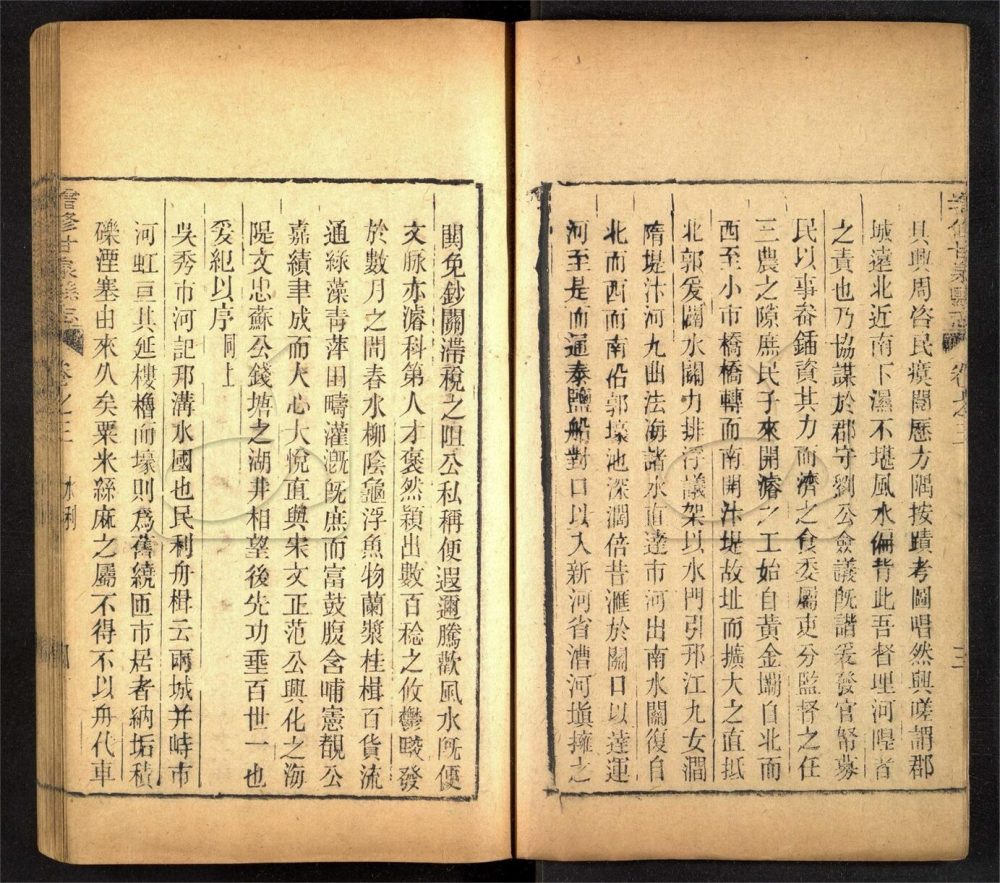 增修甘泉縣志 卷之三 三
具興周咨民瘼閱歷方隅按蹟考圖喟然興嗟謂郡
城遠北近南下濕不堪風水偏背此吾督理河隄者
之責也乃協謀於郡守劉公僉議旣諧爰發官帑募
民以事畚鍤資其力而濟之食委屬吏分監督之任
三農之隙庶民子來開濬之工始自黃金壩自北而
西至小市橋橋轉而南開汴堤故址而擴大之直抵
北郭爰闢水關力排浮議架以水門引邗江九女澗
隋堤汴河九曲法海諸水直達市河出南水關復自
北而西而南沿郭壕池深濶倍昔滙於關口以達運
河至是而運泰鹽船對口以入新河省漕河塡擁之
閧免鈔關滯稅之阻公私稱便遐邇騰歡風水旣便
文脉亦濬科第人才褒然穎出數百稔之攸鬱畯發
於數月之間春水柳陰龜浮魚物蘭槳桂楫百貨流
通綠藻靑萍田疇灌漑旣庶而富鼓腹含哺憲覩公
嘉績聿成而人心大悅直與宋文正范公興化之海
隄文忠蘇公錢塘之湖井相望後先功垂百世一也
爰紀以序 同上
吳秀市河記邗溝水國也民利舟楫云兩城並峙市
河虹亘其延樓櫓而壕則爲舊繞匝市居者納垢積
礫湮塞由來久矣粟米絲麻之屬不得不以舟代車
增修甘泉縣志 卷之三 水利